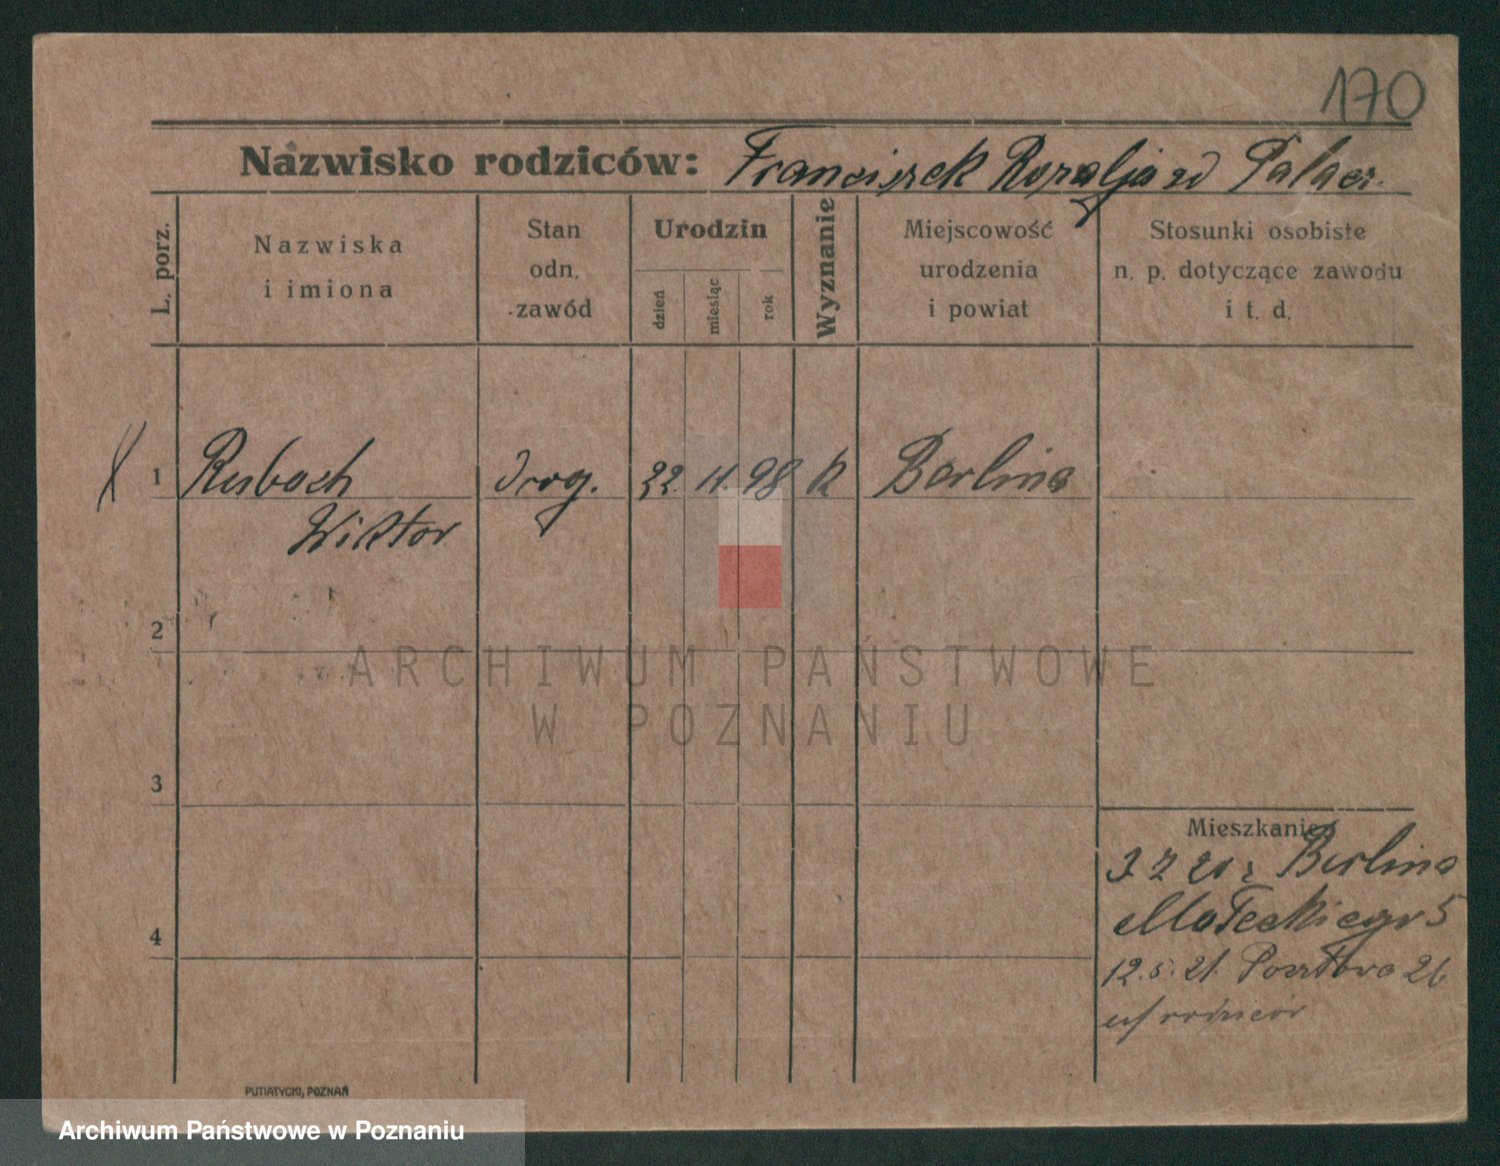 170
Nazwisko rodziców: Franciszek Rozalja zd Palacz.
L. porz.
Nazwiska
i imiona
Stan
odn.
zawód
Urodzin
dzień
miesiąc
rok
Wyznanie
Miejscowość
urodzenia
i powiat
Stosunki osobiste
n. p. dotyczące zawodu
i t. d.
1 Rubach drog. 22. 11. 98 k Berlina
Wiktor
2
ARCHIWUM PAŃSTWOWE
W POZNANIU
3
4
Mieszkanie
3 7 20 z Berlina
Małeckiego 5
12.5.21. Pocztowa 26
u/ rodziców
PUTIATYCKI, POZNAŃ
Archiwum Państwowe w Poznaniu